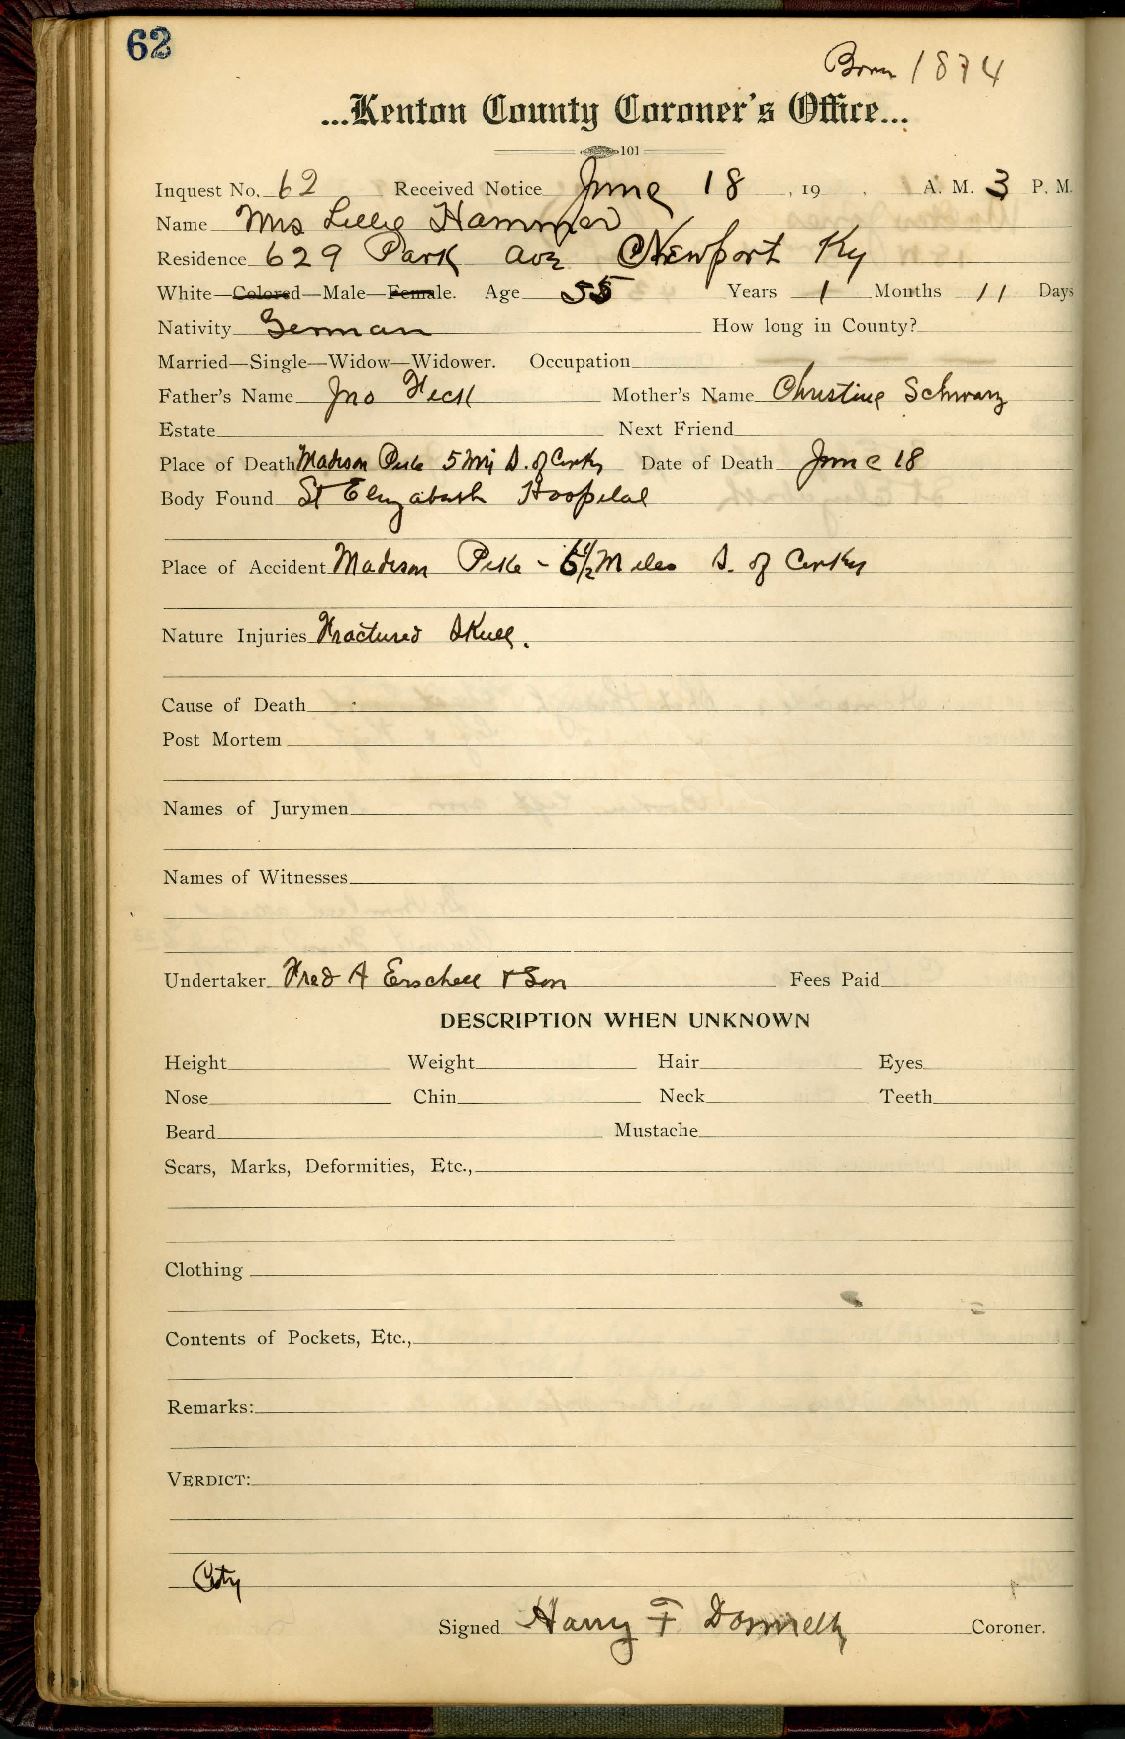 62
Born 1874
...Kenton County Coroner's Office...
101
Inquest No. 62 Received Notice June 18, 19 . A. M. 3 P. M.
Name Mrs Lillie Hammer
Residence 629 Park ave Newport Ky
White—Colored—Male—Female. Age 55 Years 1 Months 11 Days
Nativity German How long in County?
Married—Single—Widow—Widower. Occupation
Father's Name Jno Heck Mother's Name Christine Schwarz
Estate Next Friend
Place of Death Madison Pike 5 Mi S. of Covky Date of Death June 18
Body Found St Elizabeth Hospital
Place of Accident Madison Pike - 1/2 Miles S. of Covky
Nature Injuries Fractured Skull.
Cause of Death
Post Mortem
Names of Jurymen
Names of Witnesses
Undertaker Fred A Erschell & Son Fees Paid
DESCRIPTION WHEN UNKNOWN
Height Weight Hair Eyes
Nose Chin Neck Teeth
Beard Mustache
Scars, Marks, Deformities, Etc.,
Clothing
Contents of Pockets, Etc.,
Remarks:
VERDICT:
City
Signed Harry F Donnelly Coroner.